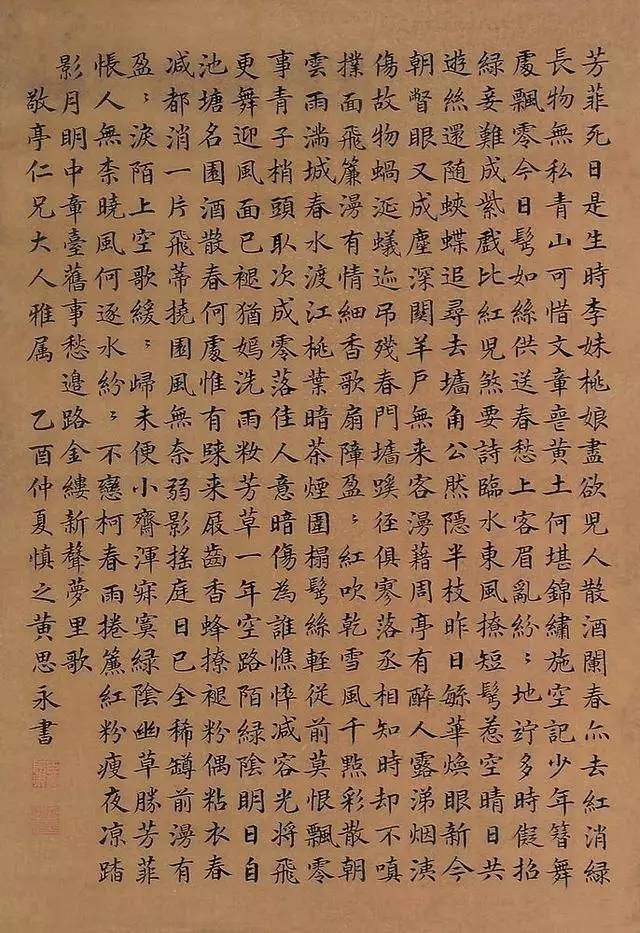 芳菲死日是生時李妹桃娘盡欲兒人散酒闌春亦去紅消綠
長物無私青山可惜文章喪黃土何堪錦繡施空記少年簪舞
處飄零今日鬂如絲供送春愁上客眉亂紛〻地竚多時假招
綠妾難成紫戲比紅兒煞要詩臨水東風撩短鬂惹空晴日共
遊絲還隨蛺蝶追尋去墻角公然隱半枝昨日緐華煥眼新今
朝瞥眼又成塵深関羊戶無来客漫藉周亭有醉人露涕烟洟
傷故物蝸涎蟻迹吊殘春門墻蹊徑俱寥落丞相知時却不嗔
撲面飛簾漫有情細香歌扇障盈〻紅吹乾雪風千點彩散朝
雲雨満城春水渡江桃葉暗茶煙圍榻鬂絲輕從前莫恨飄零
事青子梢頭取次成零落佳人意暗傷為誰憔悴减容光將飛
更舞迎風面已褪猶嫣洗雨妝芳草一年空路陌綠陰明日自
池塘名園酒散春何處惟有踈来屐齒香蜂撩褪粉偶粘衣春
减都消一片飛蒂撓園風無奈弱影搖庭日已全稀罇前漫有
盈〻淚陌上空歌緩〻歸未便小齋渾寂寞綠陰幽草勝芳菲
悵人無柰曉風何逐水紛〻不戀柯春雨捲簾紅粉瘦夜凉踏
影月明中章臺舊事愁邉路金縷新聲夢里歌
敬亭仁兄大人雅属 乙酉仲夏慎之黃思永書